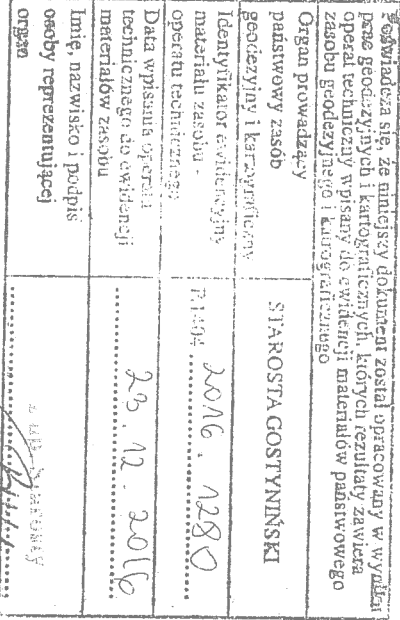 Poświadcza się, że niniejszy dokument został opracowany w wyniku
prac geodezyjnych i kartograficznych, których rezultaty zawiera
operat techniczny wpisany do ewidencji materiałów państwowego
zasobu geodezyjnego i kartograficznego
Organ prowadzący
państwowy zasób
geodezyjny i kartograficzny
STAROSTA GOSTYNIŃSKI
Identyfikator ewidencyjny
materiału zasobu -
operatu technicznego
2016. 1280
Data wpisania operatu
technicznego do ewidencji
materiałów zasobu
23. 12. 2016
Imię, nazwisko i podpis
osoby reprezentującej
organ